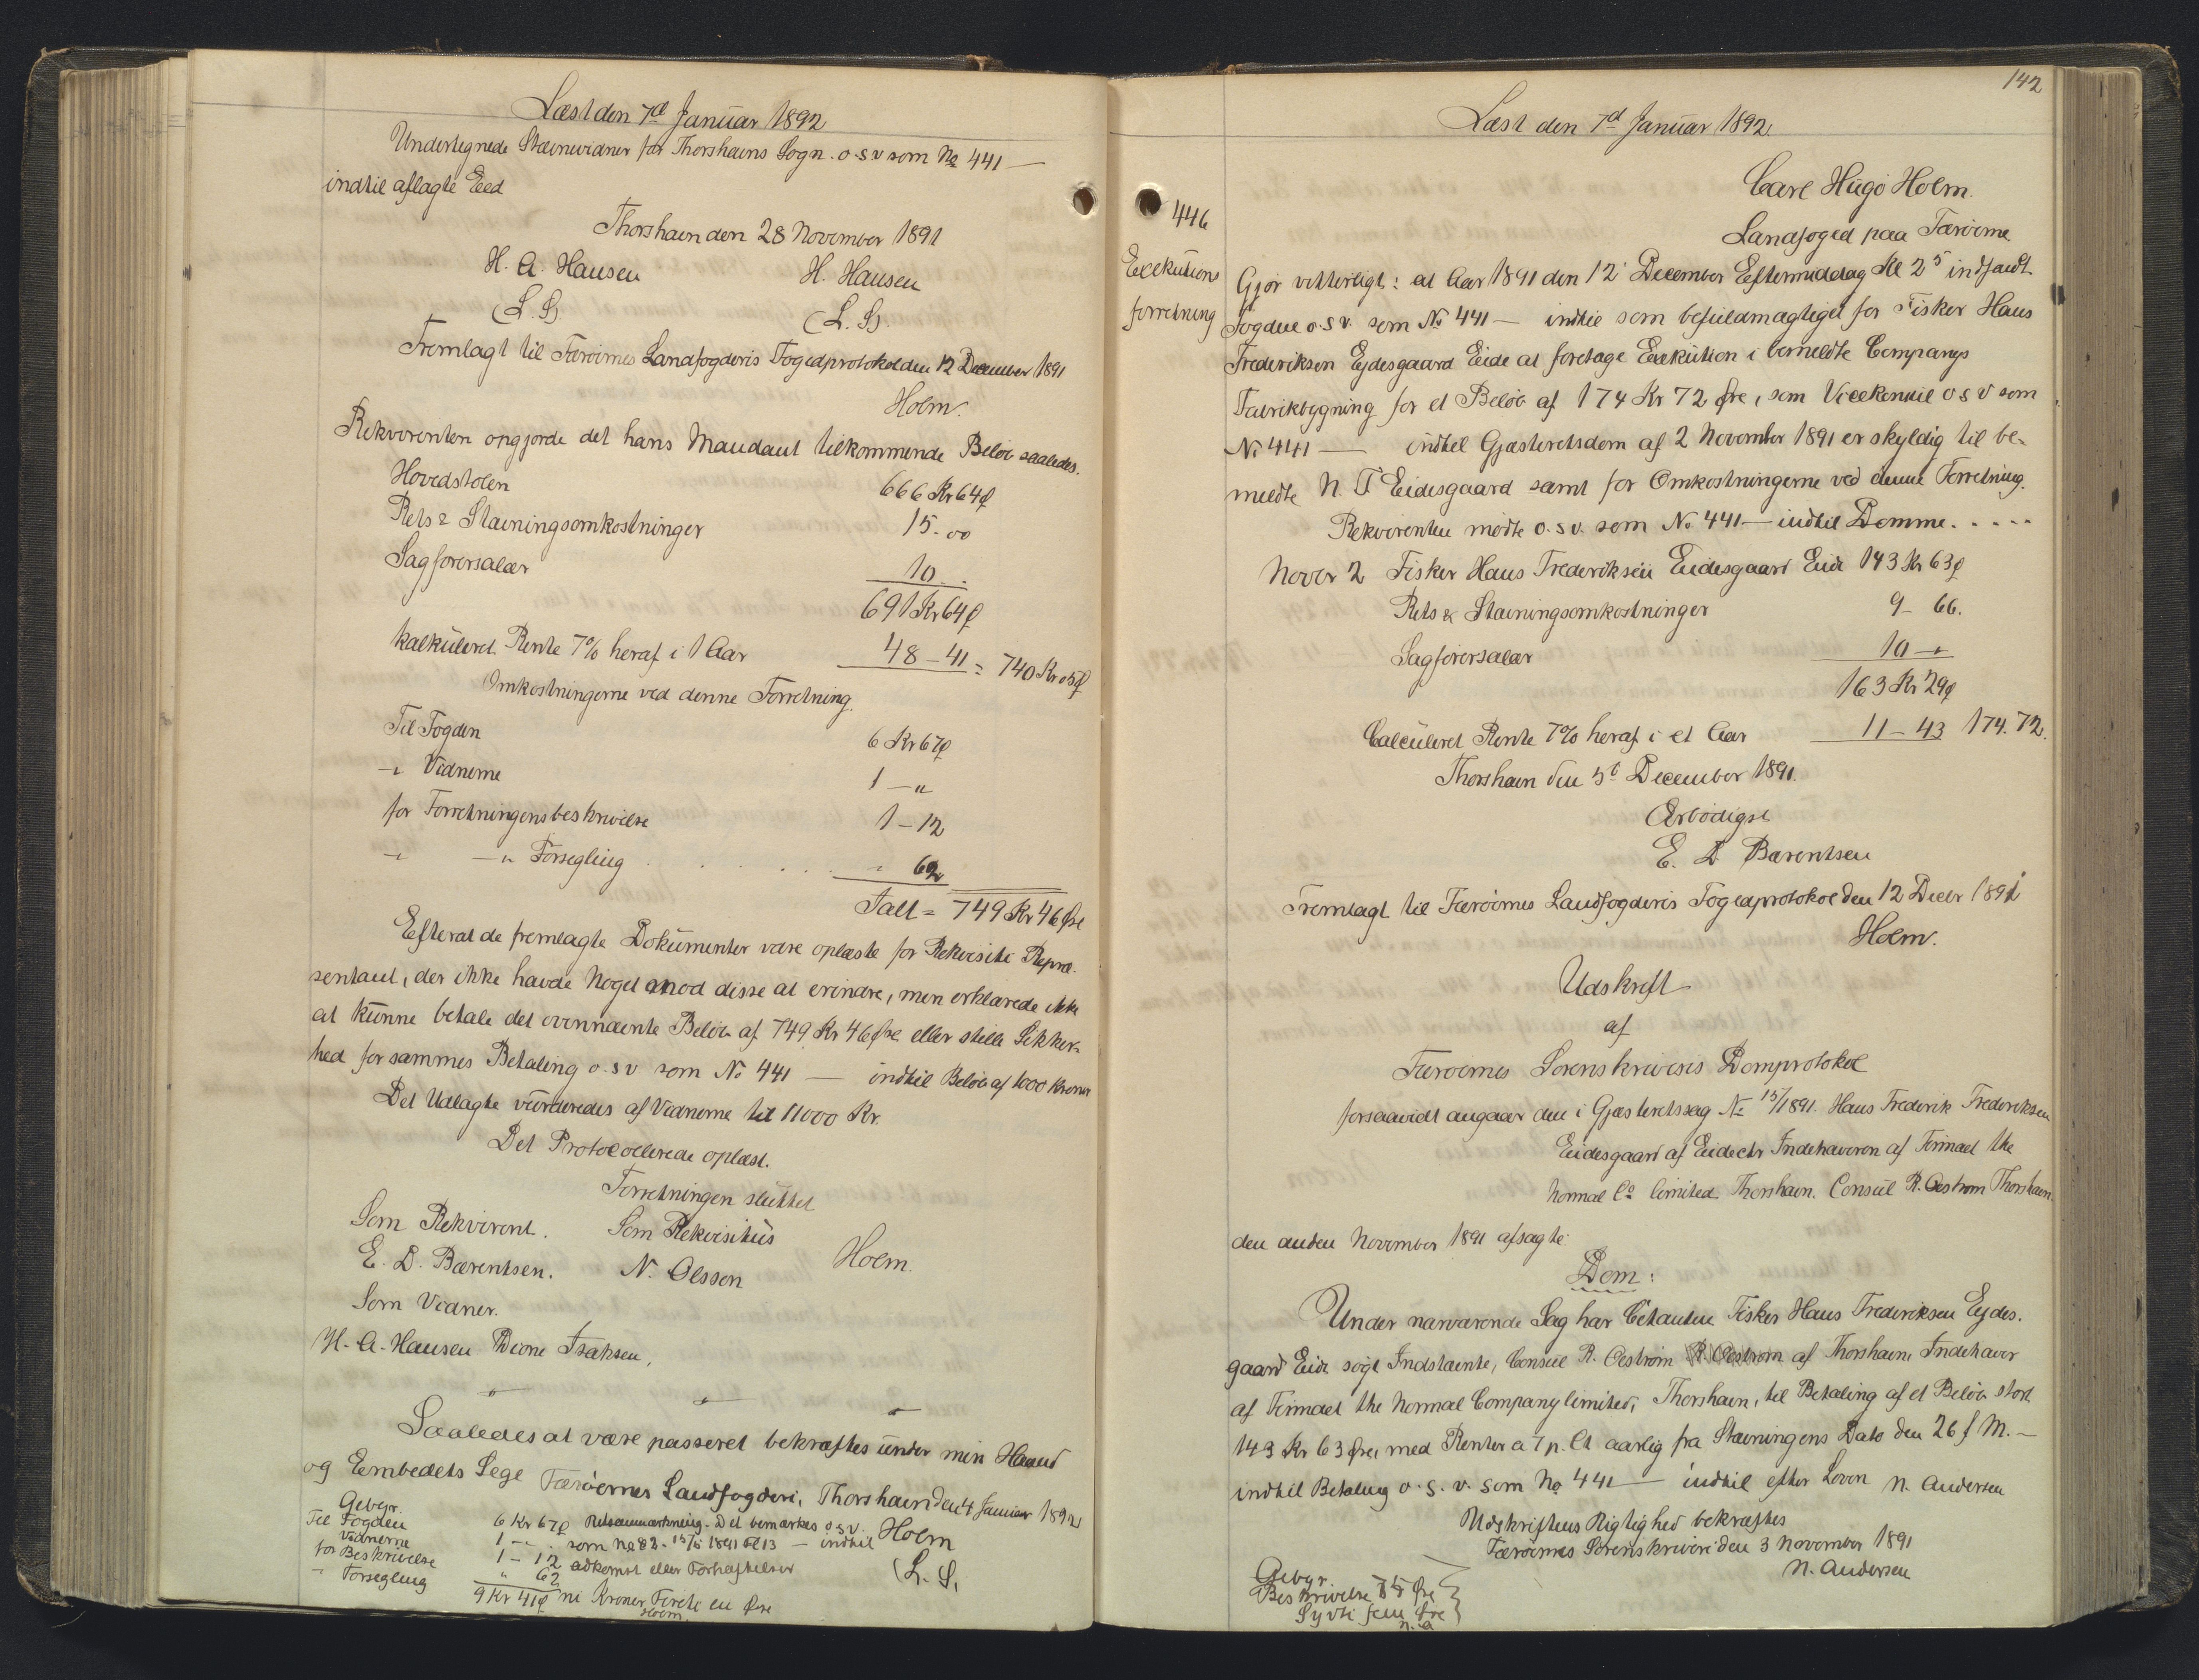 Læst den 7d Januar 1892
Undertegnede Stævnevidner for Thorshavns Sogn. o.s.v som No 441 —
indtil aflagte Eed
Thorshavn den 28 November 1891
H. A. Hansen H. Hansen
(L. S). (L. S).
Fremlagt til Færöernes Landfogderis Fogedprotokol den 12 December 1891
Holm.
Rekvirenten opgjorde det hans Mandant tilkommende Beløb saaledes.
Hovedstolen 666 Kr 64ø
Rets & Stævningsomkostninger 15-00
Sagførersalær 10 -
691 Kr 64ø
kalkuleret Rente 7% heraf i 1 Aar 48 - 41 = 740 Kr 05ø
Omkostningerne ved denne Forretning.
Til Fogden 6 Kr 67ø
-"- Vidnerne 1 - "
for Forretningens beskrivelse 1 - 12
-"- -"- Forsegling . . . . " 62
Ialt = 749 Kr 46 Øre
Efterat de fremlagte Dokumenter vare oplæste for Rekvisiti Repræ-
sentant, der ikke havde Noget mod disse at erindre, men erklærede ikke
at kunne betale det ovennævnte Beløb af 749 Kr 46 Øre eller stille Sikker-
hed for sammes Betaling o.s.v som No 441 — indtil Beløb af 1000 Kroner
Det Udlagte vurderedes af Vidnerne til 11000 Kr.
Det Protocollerede oplæst.
Forretningen sluttet
Som Rekvirent. Som Rekvisitus
E. D. Bærentsen. N. Olsson Holm.
Som Vidner.
H. A. Hansen Dione Isaksen,
" " "
Saaledes at være passeret bekræftes under min Haand
og Eembedets Segl Færöernes Landfogderi, Thorshavn den 4 Januar 1892
Gebyr.
Til Fogden 6 Kr 67ø Retsanmærkning - Det bemærkes o.s.v. Holm
Vidnerne 1 - " . som No 82 - 15/5 1891 Fol 13 — indtil
for Beskrivelse 1 - 12 adkomst eller Forhæftelser (L. S.
-"- Forsegling " 62
9 Kr 41ø ni Kroner Firti en Øre
Holm
142
Læst den 7d Januar 1892.
446
Exekutions
forretning
Carl Hugo Holm.
Landfoged paa Færöerne
Gjør vitterligt: at Aar 1891 den 12' December Eftermiddag Kl 2 5 indfandt
Fogden o.s.v. som No 441 — indtil som befuldmægtiget for Fisker Hans
Frederiksen Ejdesgaard Eide at foretage Exekution i bemeldte Companys
Fabrikbygning for et Beløb af 174 Kr 72 Øre, som Vicekonsul o s v som
No 441 — indtil Gjæsteretsdom af 2 November 1891 er skyldig til be-
meldte N. F Eidesgaard samt for Omkostningerne ved denne Forretning.
Rekvirenten mødte o.s.v. som No 441 — indtil Domme. . . . .
Novbr 2 Fisker Hans Frederiksen Eidesgaard Eide 143 Kr 63ø
Rets & Stævningsomkostninger 9 - 66.
Sagførersalær 10 - "
163 Kr 29ø
Calculeret Rente 7% heraf i et Aar 11 - 43 174.72.
Thorshavn den 5t December 1891.
Ærbödigst
E. D Bærentsen
Fremlagt til Færöernes Landfogderis Fogedprotokol den 12 Decbr 1891
Holm.
Udskrift
af
Færöernes Sorenskriveris Domprotokol
forsaavidt angaaer den i Gjæsteretssag No 15/1891. Hans Frederik Frederiksen
Eidesgaard af Eide ctr Indehaveren af Firmaet the
Normal Co limited. Thorshavn. Consul R. Oestrom Thorshavn.
den anden November 1891 afsagte
Dom:
Under nærværende Sag har Citanten Fisker Hans Frederiksen Ejdes-
gaard Eide søgt Indstævnte, Consul R. Oestrom af Thorshavn, Indehaver
af Firmaet the Normal Company limited, Thorshavn, til Betaling af et Beløb stort
143 Kr 63 Øre, med Renter a 7 p. Ct aarlig fra Stævningens Dato den 26 f M. -
indtil Betaling o. s. v. som No 441 — indtil efter Loven N. Andersen
Udskriftens Rigtighed bekræftes
Færöernes Sorenskriveri den 3 November 1891
N. Andersen
Gebyr.
Beskrivelse 75 Øre
Syvti fem Øre
N. A